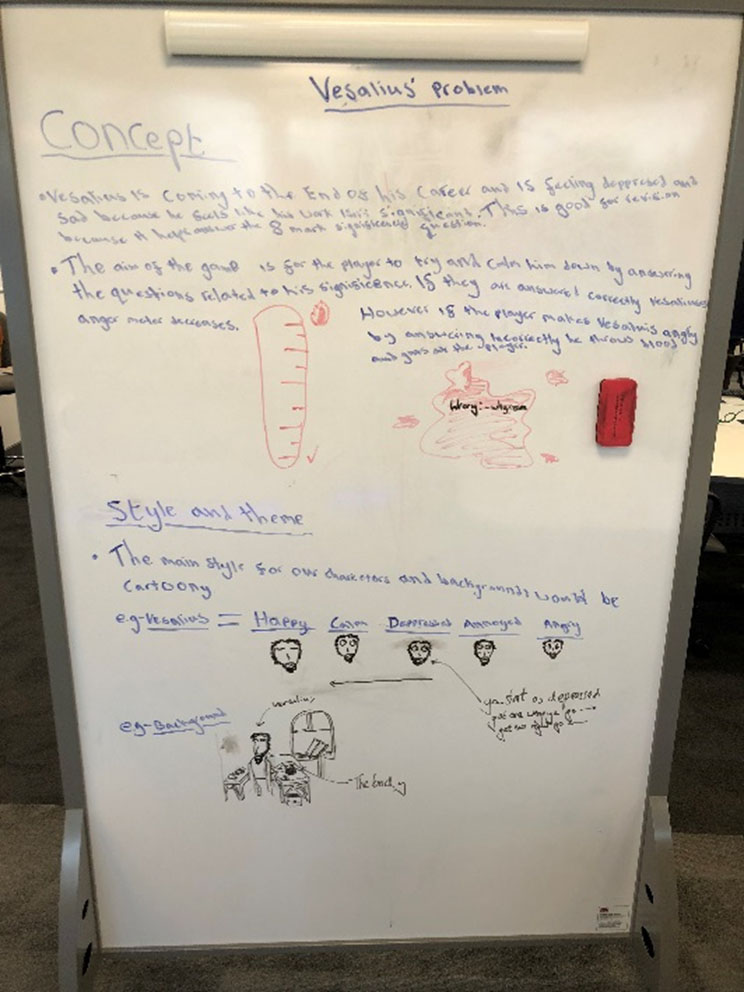 Vesalius' problem
Concept
• Vesalius is coming to the End of his career and is feeling depressed and
sad because he feels like his work isn't significant. This is good for revision
because it helps answer the 8 mark significence question.
• The aim of the game is for the player to try and calm him down by answering
the questions related to his significence. If they are answered correctly vesaliuses
anger meter decreases.
However if the player makes Vesalius angry
by answering incorrectly he throws blood
and guts at the player.
Wrong:-
Style and theme
• The main style for our charecters and backgrounds would be
cartoony
e.g-Vesalius = Happy Calm Depressed Annoyed Angry
you start as depressed
get one wrong you go
get one right go
eg-Background
vesalius
The body